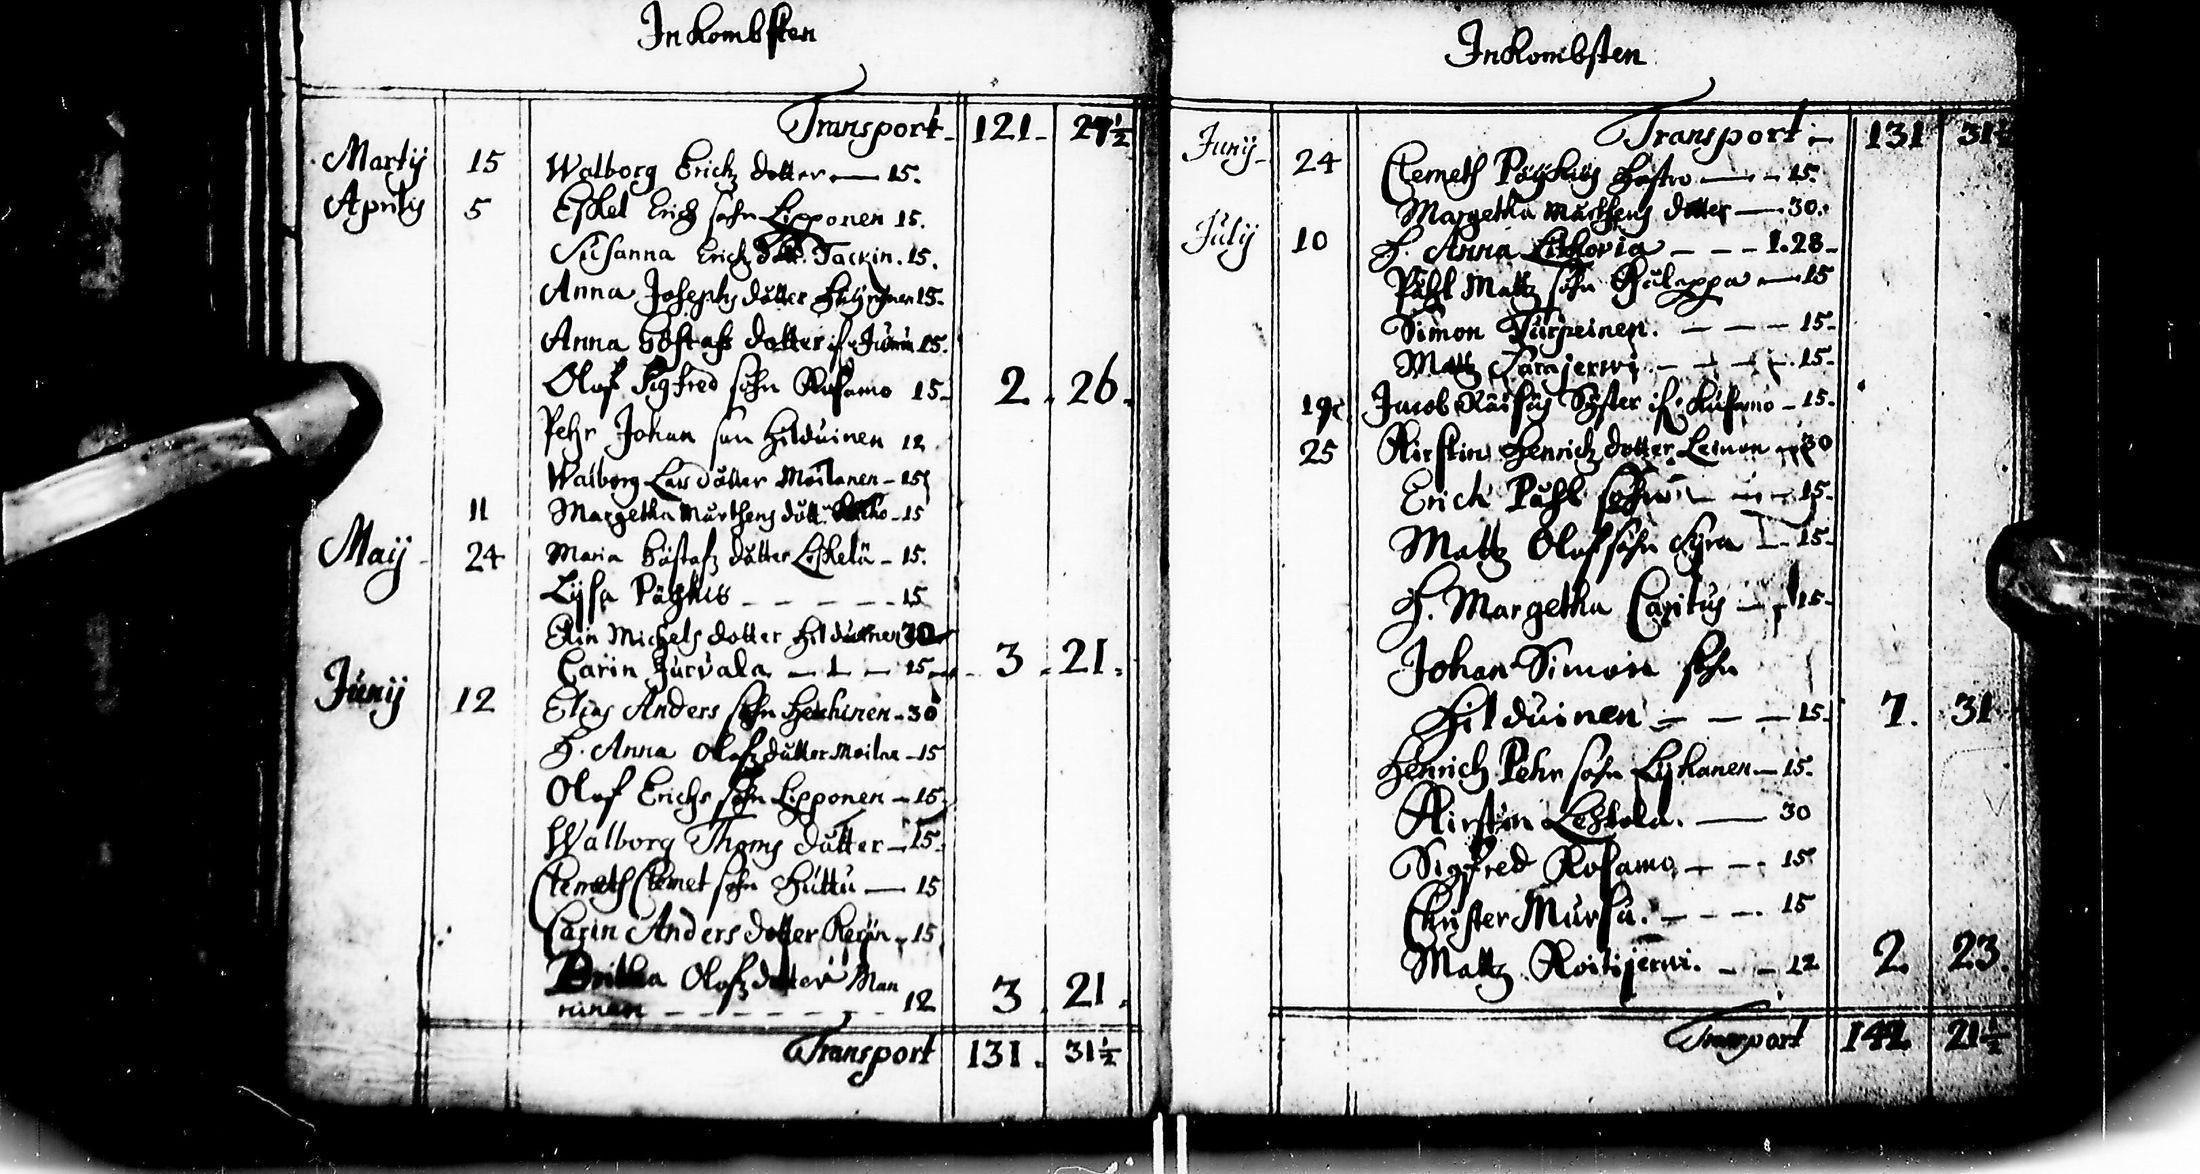 Inkombsten
Transport - 121 - 27½
Martij 15 Walborg Erichz dotter — 15.
Aprilis 5 Eskel Erich sohn Lipponen 15.
Susanna Erichz dott. Tackin. 15.
Anna Josephs dotter 15.
Anna Göstafs dotter if 15.
Olof Sigfred sohn Kusamo 15. 2. 26.
Pehr Johan son Hilduinen 12
Walborg Lars dotter Moilanen - 15
11 Margetha Murthens dott. - 15
Maij - 24 Maria Göstafz dotter Leskelä - 15.
Lijsa Päykis - - - - - 15
Elin Michels dotter Hilduinen 30
Carin Jurvala - - - 15 - 3. 21.
Junij 12 Elias Anders sohn Heickinen - 30
H. Anna Olofz dotter Moilan - 15
Olof Erichs sohn Lipponen - 15.
Walborg Thoms dotter - 15.
Clemeth Clemet sohn Huttu — 15
Carin Anders dotter - 15
Britha Olofz dotter Man
ninen - - - - - - - 12 3. 21.
Transport 131. 31½
Inkombsten
Transport - 131 31½
Junij - 24 Clemeth Päykis hustro — - 15.
Margetha Murthens dotter — 30.
Julij 10 H. Anna - - - 1. 28 -
Påhl Mattz sohn Kulappa — 15
Simon Turpeinen. - - - 15 -
Mattz Särajerwi - - - - 15 -
19 Jacob Syster if. Kusamo - 15 -
25 Kirstin Henrichz dotter 30
Erich Påhl sohn - - - 15 -
Mattz Olof sohn - 15 -
H. Margetha Caritus - - 15 -
Johan Simon sohn
Hilduinen - - - 15. 7. 31
Henrich Pehr sohn Lijkanen - 15.
Kirstin Lehtola. — 30
Sigfred Kosamo - - - 15
Christer Mursu. - - - 15
Mattz Koitijerwi. - - 12 2. 23.
Transport 142. 21½